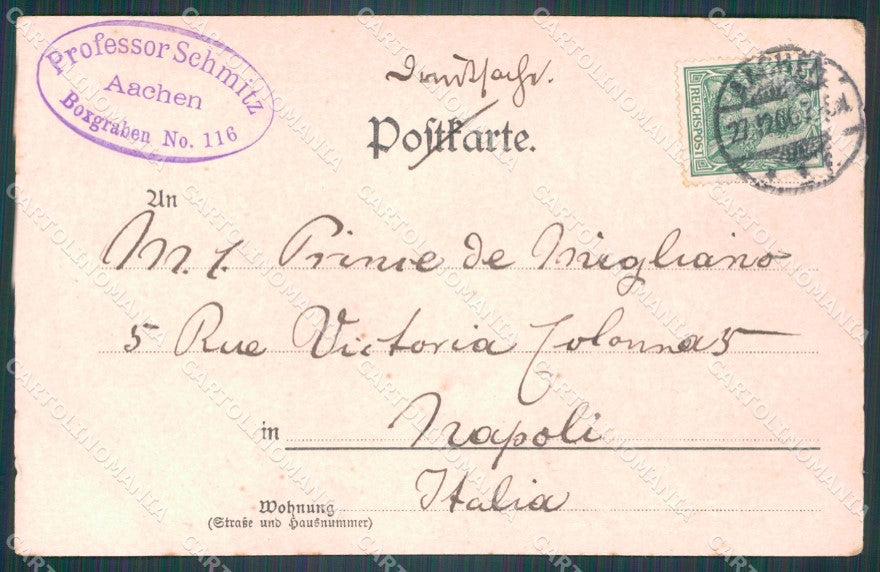 Professor Schmitz
Aachen
Boxgraben No. 116
Drucksache.
Postkarte.
REICHSPOST
AACHEN
27.12.06
An
M. l. Prince de Migliano
5 Rue Victoria Colonna 5
in Napoli
Italia
Wohnung
(Straße und Hausnummer)
CARTOLINOMANIA